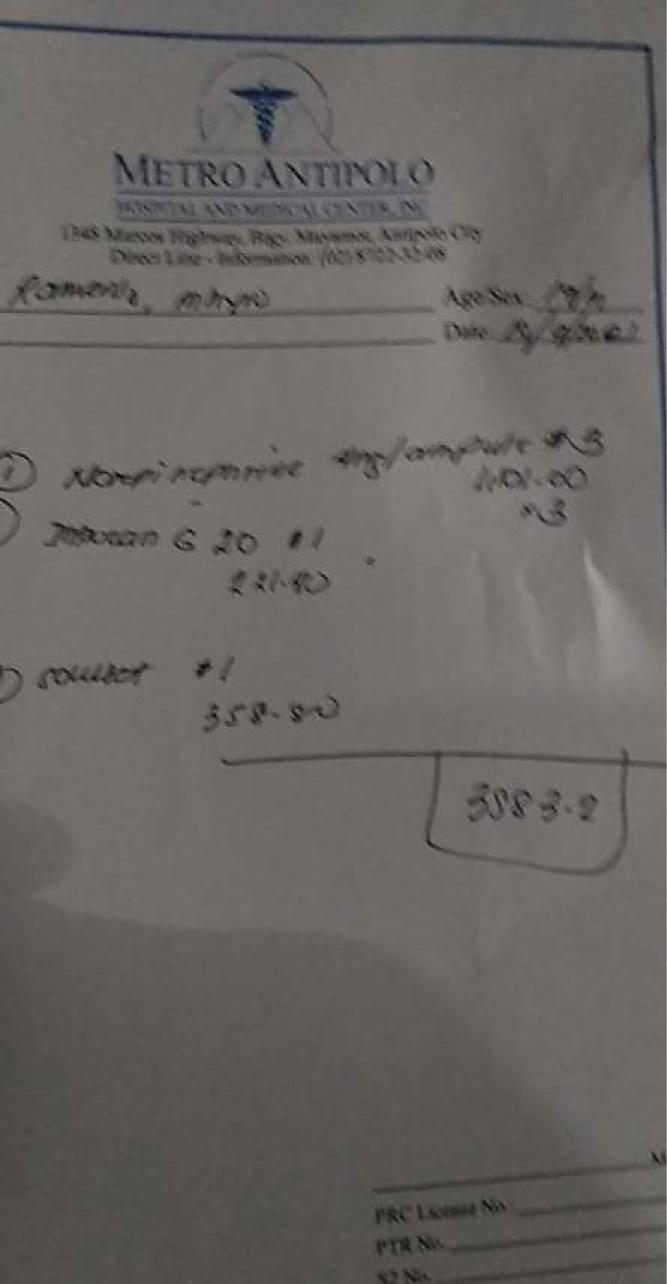 METRO ANTIPOLO
HOSPITAL AND MEDICAL CENTER, INC.
1348 Marcos Highway, Brgy. Mayamot, Antipolo City
Direct Line - Information: (02) 8722-32-08
Age/Sex:
Date:
Norepinephrine 4mg/ampule #3
1,101.00
×3
G 20 #1
221.40
soluset #1
358.80
3883.2
PRC License No.
PTR No.
S2 No.